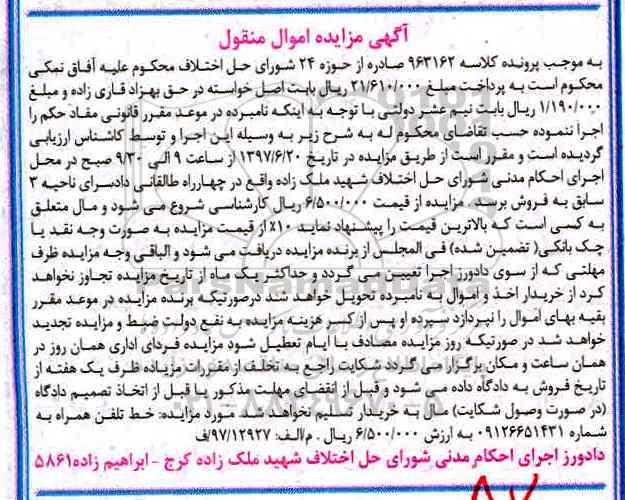 آگهی مزایده اموال منقول
به موجب پرونده کلاسه ۹۶۳۱۶۲ صادره از حوزه ۲۴ شورای حل اختلاف محکوم علیه آفاق نمکی
محکوم است به پرداخت مبلغ ۲۱/۶۱۰/۰۰۰ ریال بابت اصل خواسته در حق بهزاد قاری زاده و مبلغ
۱/۱۹۰/۰۰۰ ریال بابت نیم عشر دولتی با توجه به اینکه نامبرده در موعد مقرر قانونی مفاد حکم را
اجرا ننموده حسب تقاضای محکوم له به شرح زیر به وسیله این اجرا و توسط کاشناس ارزیابی
گردیده است و مقرر است از طریق مزایده در تاریخ ۱۳۹۷/۶/۲۰ از ساعت ۹ الی ۹/۳۰ صبح در محل
اجرای احکام مدنی شورای حل اختلاف شهید ملک زاده واقع در چهارراه طالقانی دادسرای ناحیه ۳
سابق به فروش برسد. مزایده از قیمت ۶/۵۰۰/۰۰۰ ریال کارشناسی شروع می شود و مال متعلق
به کسی است که بالاترین قیمت را پیشنهاد نماید ۱۰٪ از قیمت مزایده به صورت وجه نقد یا
چک بانکی( تضمین شده) فی المجلس از برنده مزایده دریافت می شود و الباقی وجه مزایده ظرف
مهلتی که از سوی دادورز اجرا تعیین می گردد و حداکثر یک ماه از تاریخ مزایده تجاوز نخواهد
کرد از خریدار اخذ و اموال به نامبرده تحویل خواهد شد درصورتیکه برنده مزایده در موعد مقرر
بقیه بهای اموال را نپردازد سپرده او پس از کسر هزینه مزایده به نفع دولت ضبط و مزایده تجدید
خواهد شد در صورتیکه روز مزایده مصادف با ایام تعطیل شود مزایده فردای اداری همان روز در
همان ساعت و مکان برگزار می گردد شکایت راجع به تخلف از مقررات مزیاده ظرف یک هفته از
تاریخ فروش به دادگاه داده می شود و قبل از انقضای مهلت مذکور یا قبل از اتخاذ تصمیم دادگاه
(در صورت وصول شکایت) مال به خریدار تسلیم نخواهد شد. مورد مزایده: خط تلفن همراه به
شماره ۰۹۱۲۶۶۵۱۴۳۱ به ارزش ۶/۵۰۰/۰۰۰ ریال . م/الف: ۹۷/۱۲۹۲۷/ف
دادورز اجرای احکام مدنی شورای حل اختلاف شهید ملک زاده کرج - ابراهیم زاده ۵۸۶۱